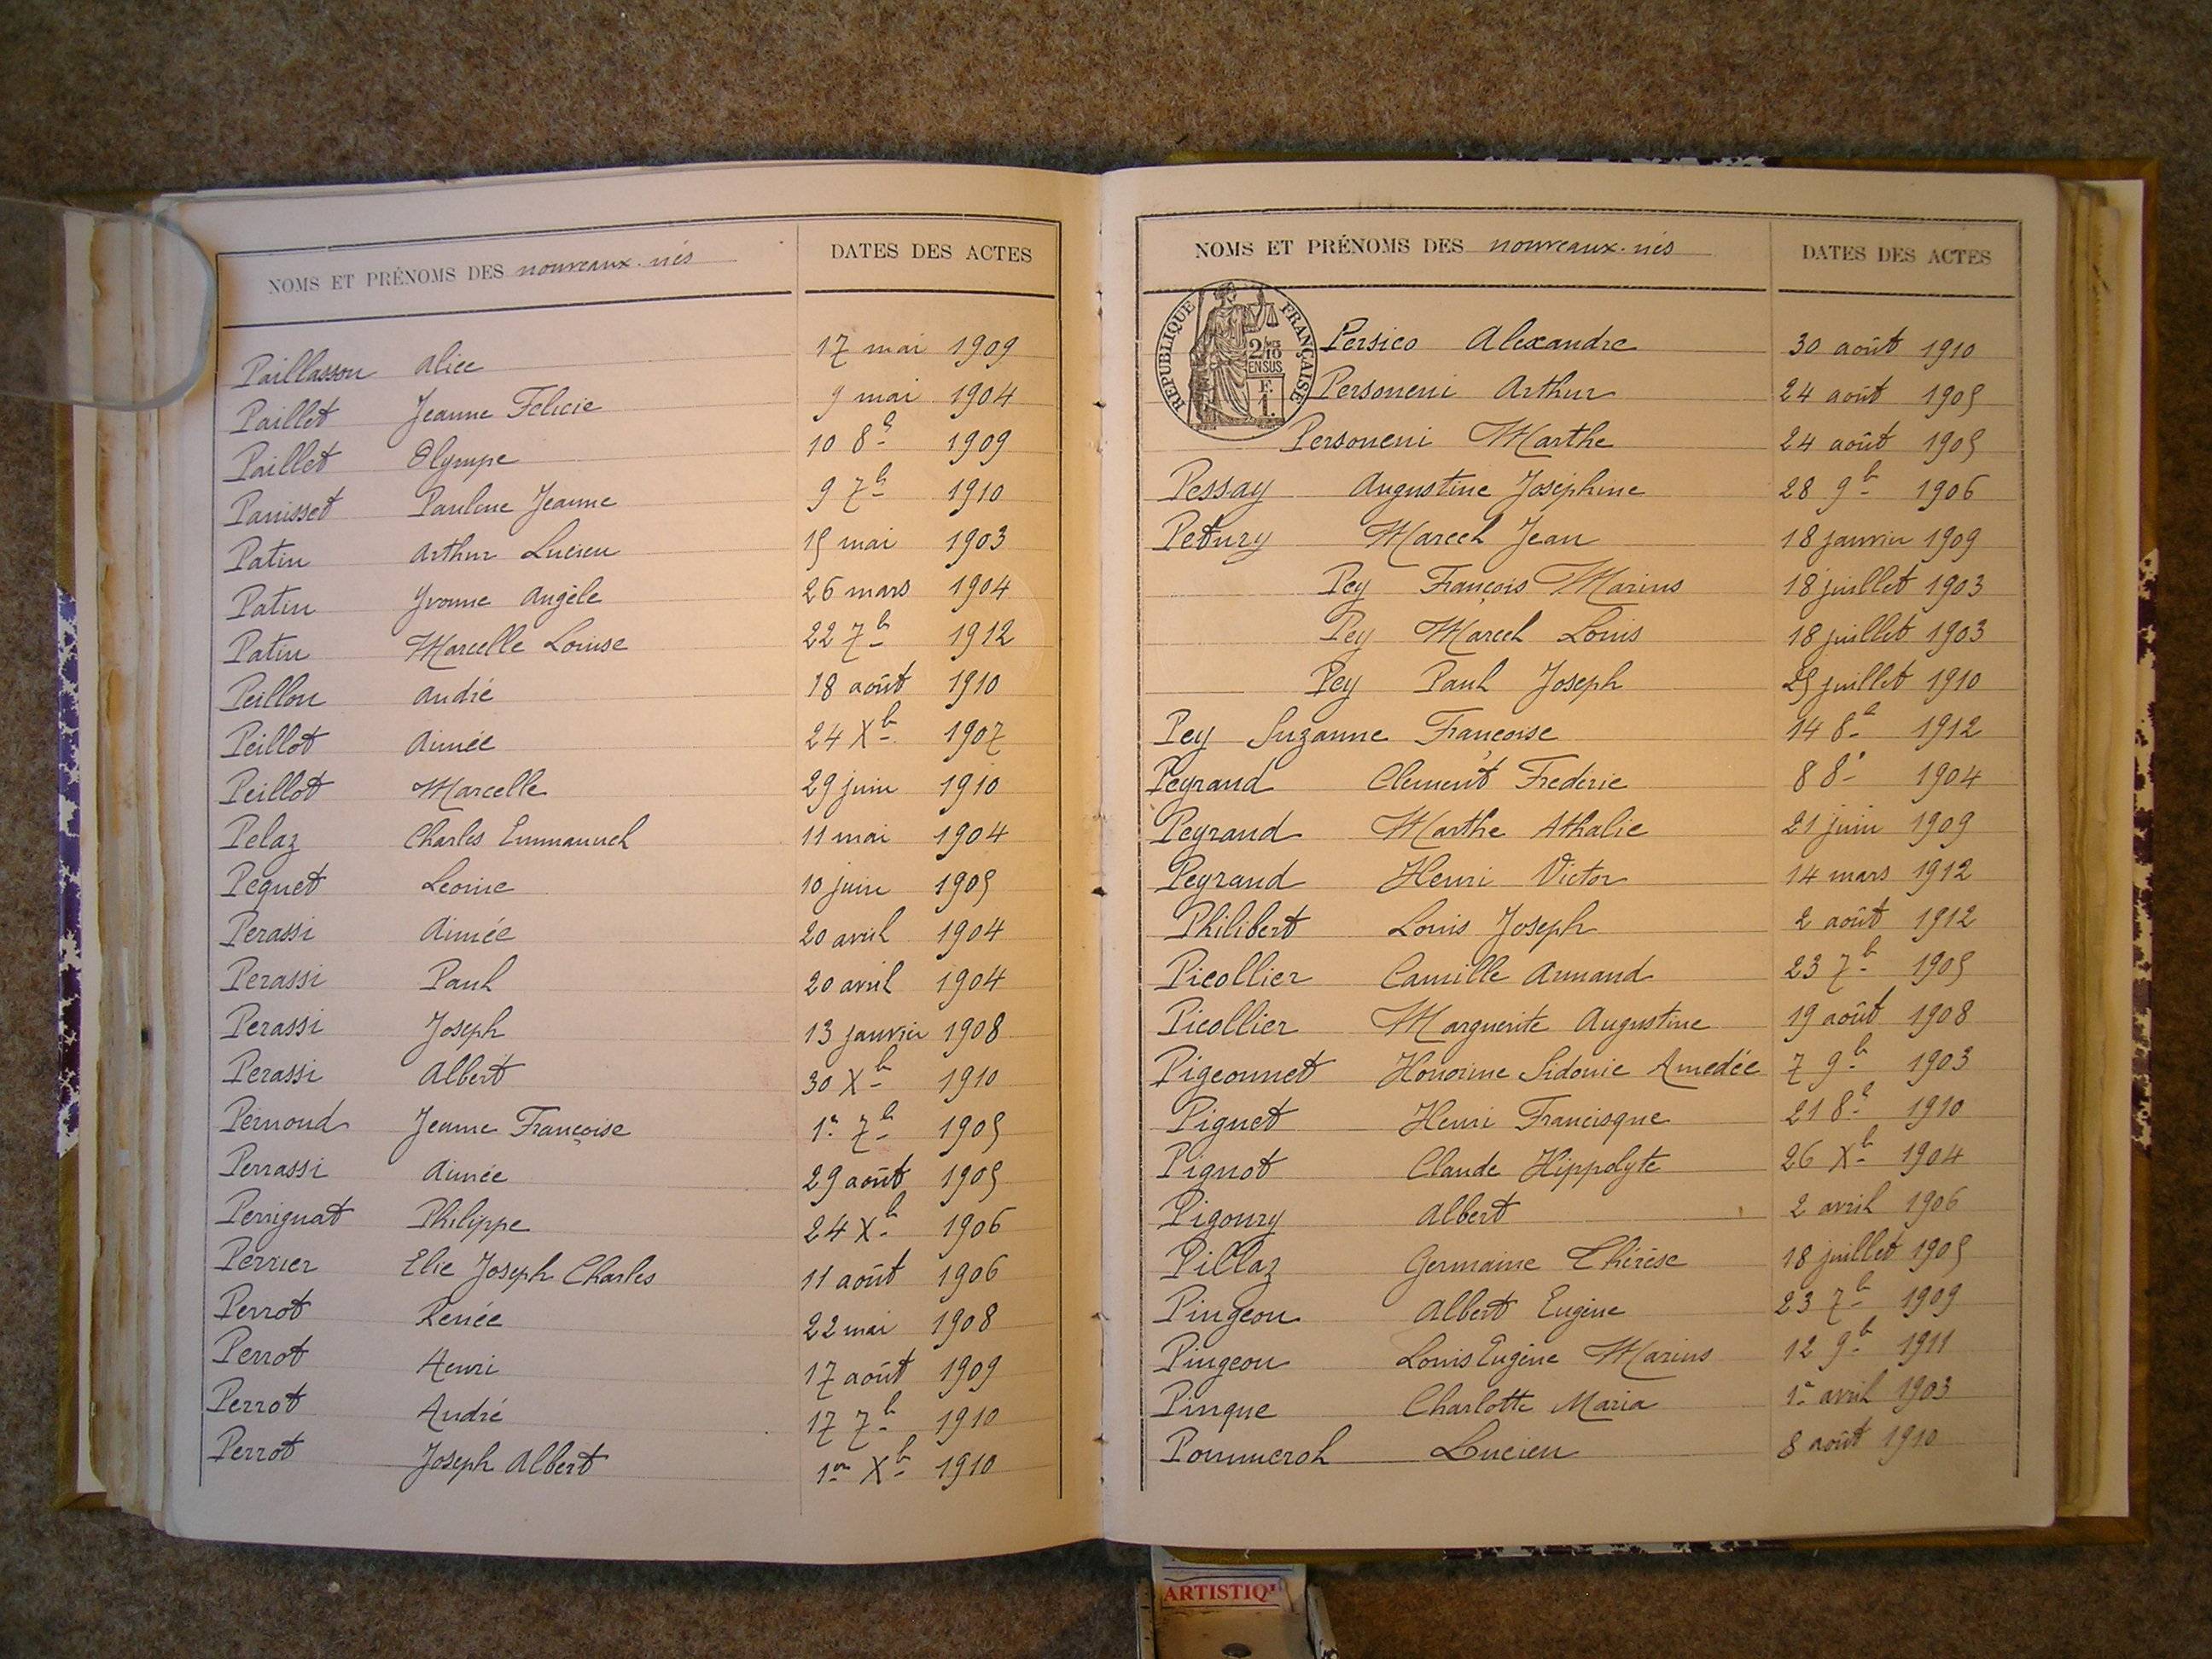 NOMS ET PRÉNOMS DES nouveaux-nés DATES DES ACTES
Paillasson Alice 17 mai 1909
Paillet Jeanne Félicie 9 mai 1904
Paillet Olympe 10 8b 1909
Panisset Pauline Jeanne 9 7b 1910
Patin Arthur Lucien 15 mai 1903
Patin Yvonne Angèle 26 mars 1904
Patin Marcelle Louise 22 7b 1912
Peillon André 18 août 1910
Peillot Aimée 24 Xb 1907
Peillot Marcelle 29 juin 1910
Pelaz Charles Emmanuel 11 mai 1904
Pequet Leonie 10 juin 1905
Perassi Aimée 20 avril 1904
Perassi Paul 20 avril 1904
Perassi Joseph 13 janvier 1908
Perassi Albert 30 Xb 1910
Pernoud Jeanne Françoise 1er 7b 1905
Perrassi Aimée 29 août 1905
Perrignat Philippe 24 Xb 1906
Perrier Elie Joseph Charles 11 août 1906
Perrot Renée 22 mai 1908
Perrot Henri 17 août 1909
Perrot André 17 7b 1910
Perrot Joseph Albert 1er Xb 1910
NOMS ET PRÉNOMS DES nouveaux-nés DATES DES ACTES
RÉPUBLIQUE FRANÇAISE
2/10 MES
EN SUS
F.
1.
Persico Alexandre 30 août 1910
Personeni Arthur 24 août 1905
Personeni Marthe 24 août 1905
Pessay Augustine Joséphine 28 9b 1906
Petury Marcel Jean 18 janvier 1909
Pey François Marius 18 juillet 1903
Pey Marcel Louis 18 juillet 1903
Pey Paul Joseph 25 juillet 1910
Pey Suzanne Françoise 14 8b 1912
Peyrand Clement Frederic 8 8b 1904
Peyrand Marthe Athalie 21 juin 1909
Peyrand Henri Victor 14 mars 1912
Philibert Louis Joseph 2 août 1912
Picollier Camille Armand 23 7b 1905
Picollier Marguerite Augustine 19 août 1908
Pigeonnet Honorine Sidonie Amedée 7 9b 1903
Piguet Henri Francisque 21 8b 1910
Pignot Claude Hippolyte 26 Xb 1904
Pigoury Albert 2 avril 1906
Pillaz Germaine Thérèse 18 juillet 1905
Pingeon Albert Eugène 23 7b 1909
Pingeon Louis Eugène Marius 12 9b 1911
Pinque Charlotte Maria 1er avril 1903
Pommerol Lucien 8 août 1910
ARTISTIQ